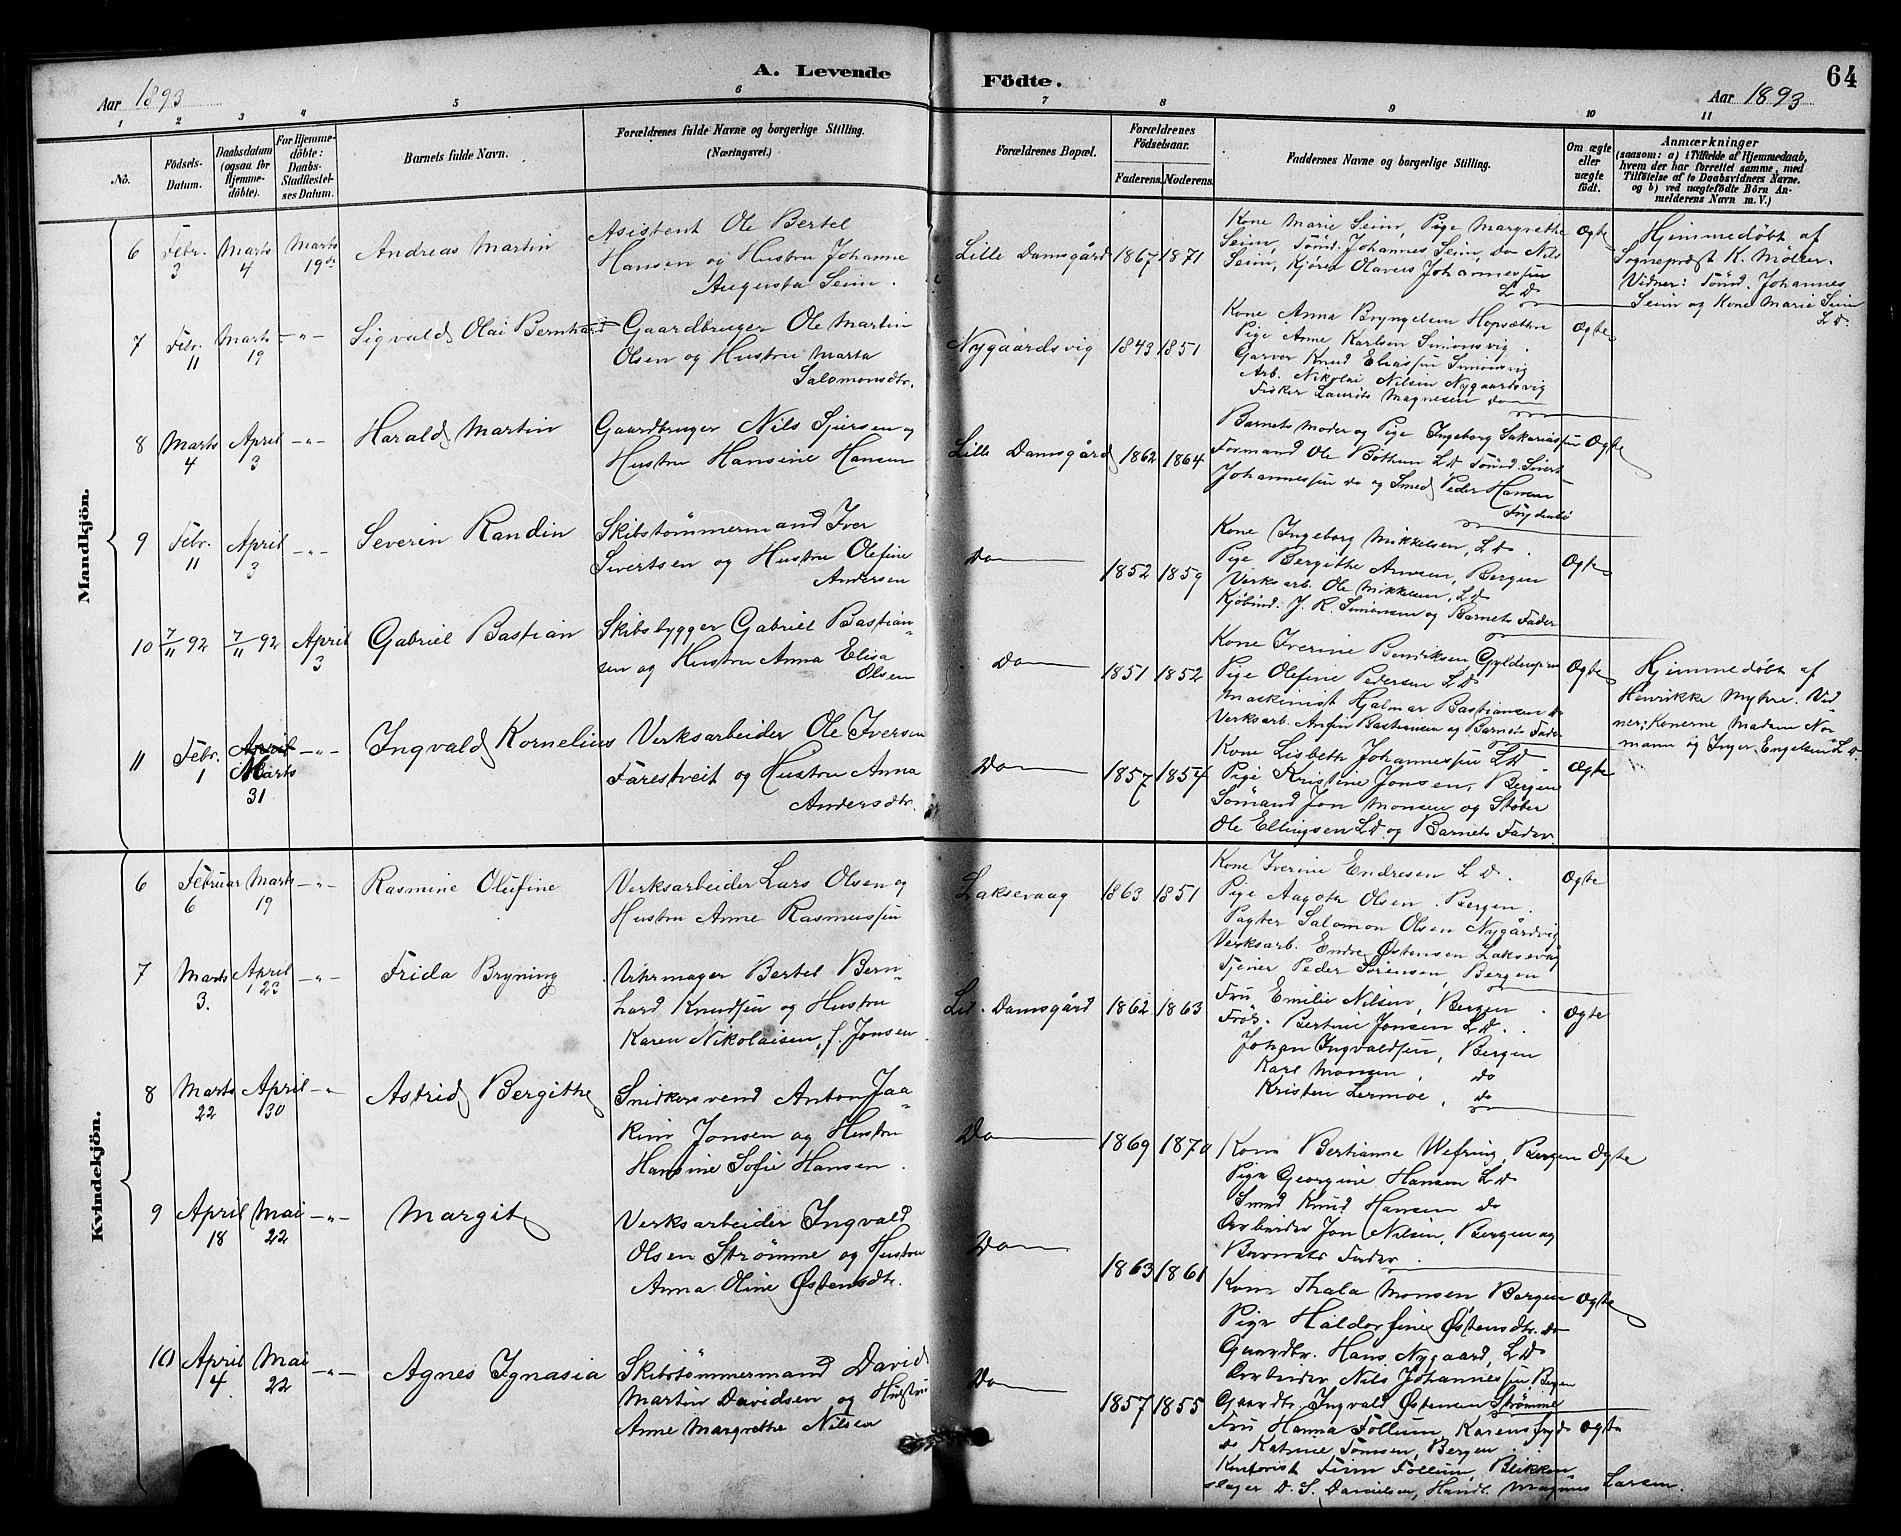 A. Levende Födte.
64
Aar 1893
Aar 1893
1 2 3 4 5 6 7 8 9 10 11
No.
Födsels-Datum.
Daabsdatum (ogsaa for Hjemme-döbte).
For Hjemme-döbte: Daabs-Stadfestel-ses Datum.
Barnets fulde Navn.
Forældrenes fulde Navne og borgerlige Stilling.
(Næringsvei.)
Forældrenes Bopæl.
Forældrenes Födselsaar.
Faderens. Moderens.
Faddernes Navne og borgerlige Stilling.
Om ægte eller uægte födt.
Anmærkninger
(saasom: a) i Tilfælde af Hjemmedaab,
hvem der har forrettet samme, med
Tilföielse af to Daabsvidners Navne.
og b) ved uægtefödte Börn An-
melderens Navn m. V.)
Mandkjön.
6 Febr. 3 Marts 4 Marts 19de Andreas Martin
Asistent Ole Bertel
Hansen og Hustru Johanne
Augusta Seim.
Lille Damsgård 1867 1871
Kone Marie Seim, Pige Margrethe
Seim, Tömd. Johannes Seim, do Nils
Seim, Kjörer Olavus Johannessen
LD
Ogte
Hjemmedöbt af
Sognepræst K. Möller.
Vidner: Tömd. Johannes
Seim og Kone Marie Seim
LD.
7 Febr. 11 Marts 19 -"- Sigvald Olai Bernhard
Gaardbruger Ole Martin
Olsen og Hustru Marta
Salomonsdtr.
Nygaardsvig 1843 1851
Kone Anna Bryngelsen Hopsættre
Pige Anne Karlsen Simonsvig.
Garver Knud Eliassen Simonsvig
Arb. Nikolai Nilsen Nygaardsvig
Fisker Laurits Magnesen do
Ogte
8 Marts 4 April 3 -"- Harald Martin
Gaardbruger Nils Sjursen og
Hustru Hansine Hansen
Lille Damsgård 1862 1864
Barnets moder og Pige Ingeborg Sakariassen
Formand Ole Böthun LD Tömd. Sivert
Johannessen do og Smed Peder Hansen
Frydenbö
Ogte
9 Febr. 11 April 3 -"- Severin Randin
Skibstömmermand Iver
Sivertsen og Hustru Olefine
Andersen
Do 1852 1859
Kone Ingeborg Mikkelsen, LD.
Pige Bergithe Arnesen, Bergen
Verksarb. Ole Mikkelsen, LD
Kjöbmd. J. R. Simonsen og Barnets Fader
Ogte
10 7/11 92 7/11 92 April 3 Gabriel Bastian
Skibsbygger Gabriel Bastian-
sen og Hustru Anna Elisa
Olsen
Do 1851 1852
Kone Iverine Benriksen Gyldenpren
Pige Olefine Pedersen LD
Maskinist Hjalmar Bastiansen do
Verksarb. Anfin Bastiansen og Barnets Fader
Ogte
Hjemmedöbt af
Henrikke Myhre. Vid-
ner: Konerne Madem Nor-
mann og Inger Engelsen LD.
11 Febr. 1 Marts 31 -"- Ingvald Kornelius
Verksarbeider Ole Iversen
Farestveit og Hustru Anna
Andersdtr.
Do 1857 1854
Kone Lisbeth Johannessen LD
Pige Kristine Jonsen, Bergen
Sömand Jon Monsen og Støber
Ole Ellingsen LD. og Barnets Fader.
Ogte
Kvindekjön.
6 Februar 6 Marts 19 -"- Rasmine Olufine
Verksarbeider Lars Olsen og
Hustru Anne Rasmussen
Laksevaag 1863 1851
Kone Iverine Endresen LD.
Pige Aagothe Olsen. Bergen.
Pagter Salomon Olsen Nygårdvig
Verksarb. Endre Østensen Laksevåg
Tjener Peder Sörensen, Bergen
Ogte
7 Marts 3. April 23 -"- Frida Bryning
Uhrmager Bertel Bern-
hard Knudsen og Hustru
Karen Nikolaisen, f. Jonsen
Lil. Damsgård 1862 1863
Fru Emilie Nilsen, Bergen
Frök. Bertine Jonsen LD.
Johan Ingvaldsen, Bergen
Karl Monsen, do
Kristen Lermoe, do
Ogte
8 Marts 22 April 30 -"- Astrid Bergithe
Snidkersvend Anton Joa-
kim Jonsen og Hustru
Hansine Sofie Hansen.
Do 1869 1870
Kone Bertianne Wefring, Bergen
Pige Georgine Hansen LD
Smed Knud Hansen do
Arbeider Jon Nilsen, Bergen og
Barnets Fader.
Ogte
9 April 18 Mai 22 -"- Margit
Verksarbeider Ingvald
Olsen Strömme og Hustru
Anna Oline Østensdtr.
Do 1863 1861
Kone Thala Monsen Bergen
Pige Haldorfine Østensdtr. do
Gaardbr. Hans Nygaard, LD
Arbeider Nils Johannessen Bergen
Gaardbr. Ingvald Østensen Strömme
Ogte
10 April 4 Mai 22 -"- Agnes Ignasia
Skibstömmermand David
Martin Davidsen og Hustru
Anne Margrethe Nilsen
Do 1857 1855
Fru Hanna Follum, Karensfryd
do Katrine Tomsen, Bergen
Kontorist Finn Follum, Blikken-
slager D. S. Danielsen, Handl. Magnus Larsen.
Ogte